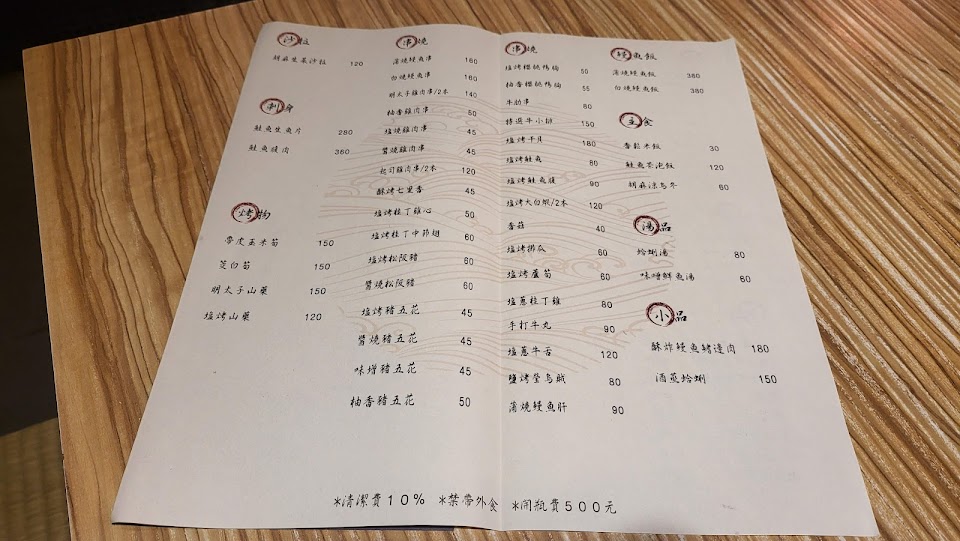 沙拉
胡麻生菜沙拉 120
刺身
鮭魚生魚片 280
鮭魚腹肉 360
烤物
帶皮玉米筍 150
茭白筍 150
明太子山藥 150
塩烤山藥 120
串燒
蒲燒鰻魚串 160
白燒鰻魚串 160
明太子雞肉串/2本 140
柚香雞肉串 50
塩燒雞肉串 45
醬燒雞肉串 45
起司雞肉串/2本 120
酥烤七里香 45
塩烤桂丁雞心 50
塩烤桂丁中節翅 60
塩烤松阪豬 60
醬燒松阪豬 60
塩烤豬五花 45
醬燒豬五花 45
味增豬五花 45
柚香豬五花 50
串燒
塩烤櫻桃鴨胸 50
柚香櫻桃鴨胸 55
牛肋串 80
特選牛小排 150
塩烤干貝 180
塩烤鮭魚 80
塩烤鮭魚腹 90
塩烤大白蝦/2本 120
香菇 40
塩烤櫛瓜 60
塩烤蘆筍 60
塩蔥桂丁雞 80
手打牛丸 90
塩蔥牛舌 120
鹽烤螢烏賊 80
蒲燒鰻魚肝 90
鰻魚飯
蒲燒鰻魚飯 380
白燒鰻魚飯 380
主食
香鬆米飯 30
鮭魚茶泡飯 120
胡麻涼烏冬 60
湯品
蛤蜊湯 80
味噌鮮魚湯 80
小品
酥炸鰻魚鰭邊肉 180
酒蒸蛤蜊 150
*清潔費10% *禁帶外食 *開瓶費500元